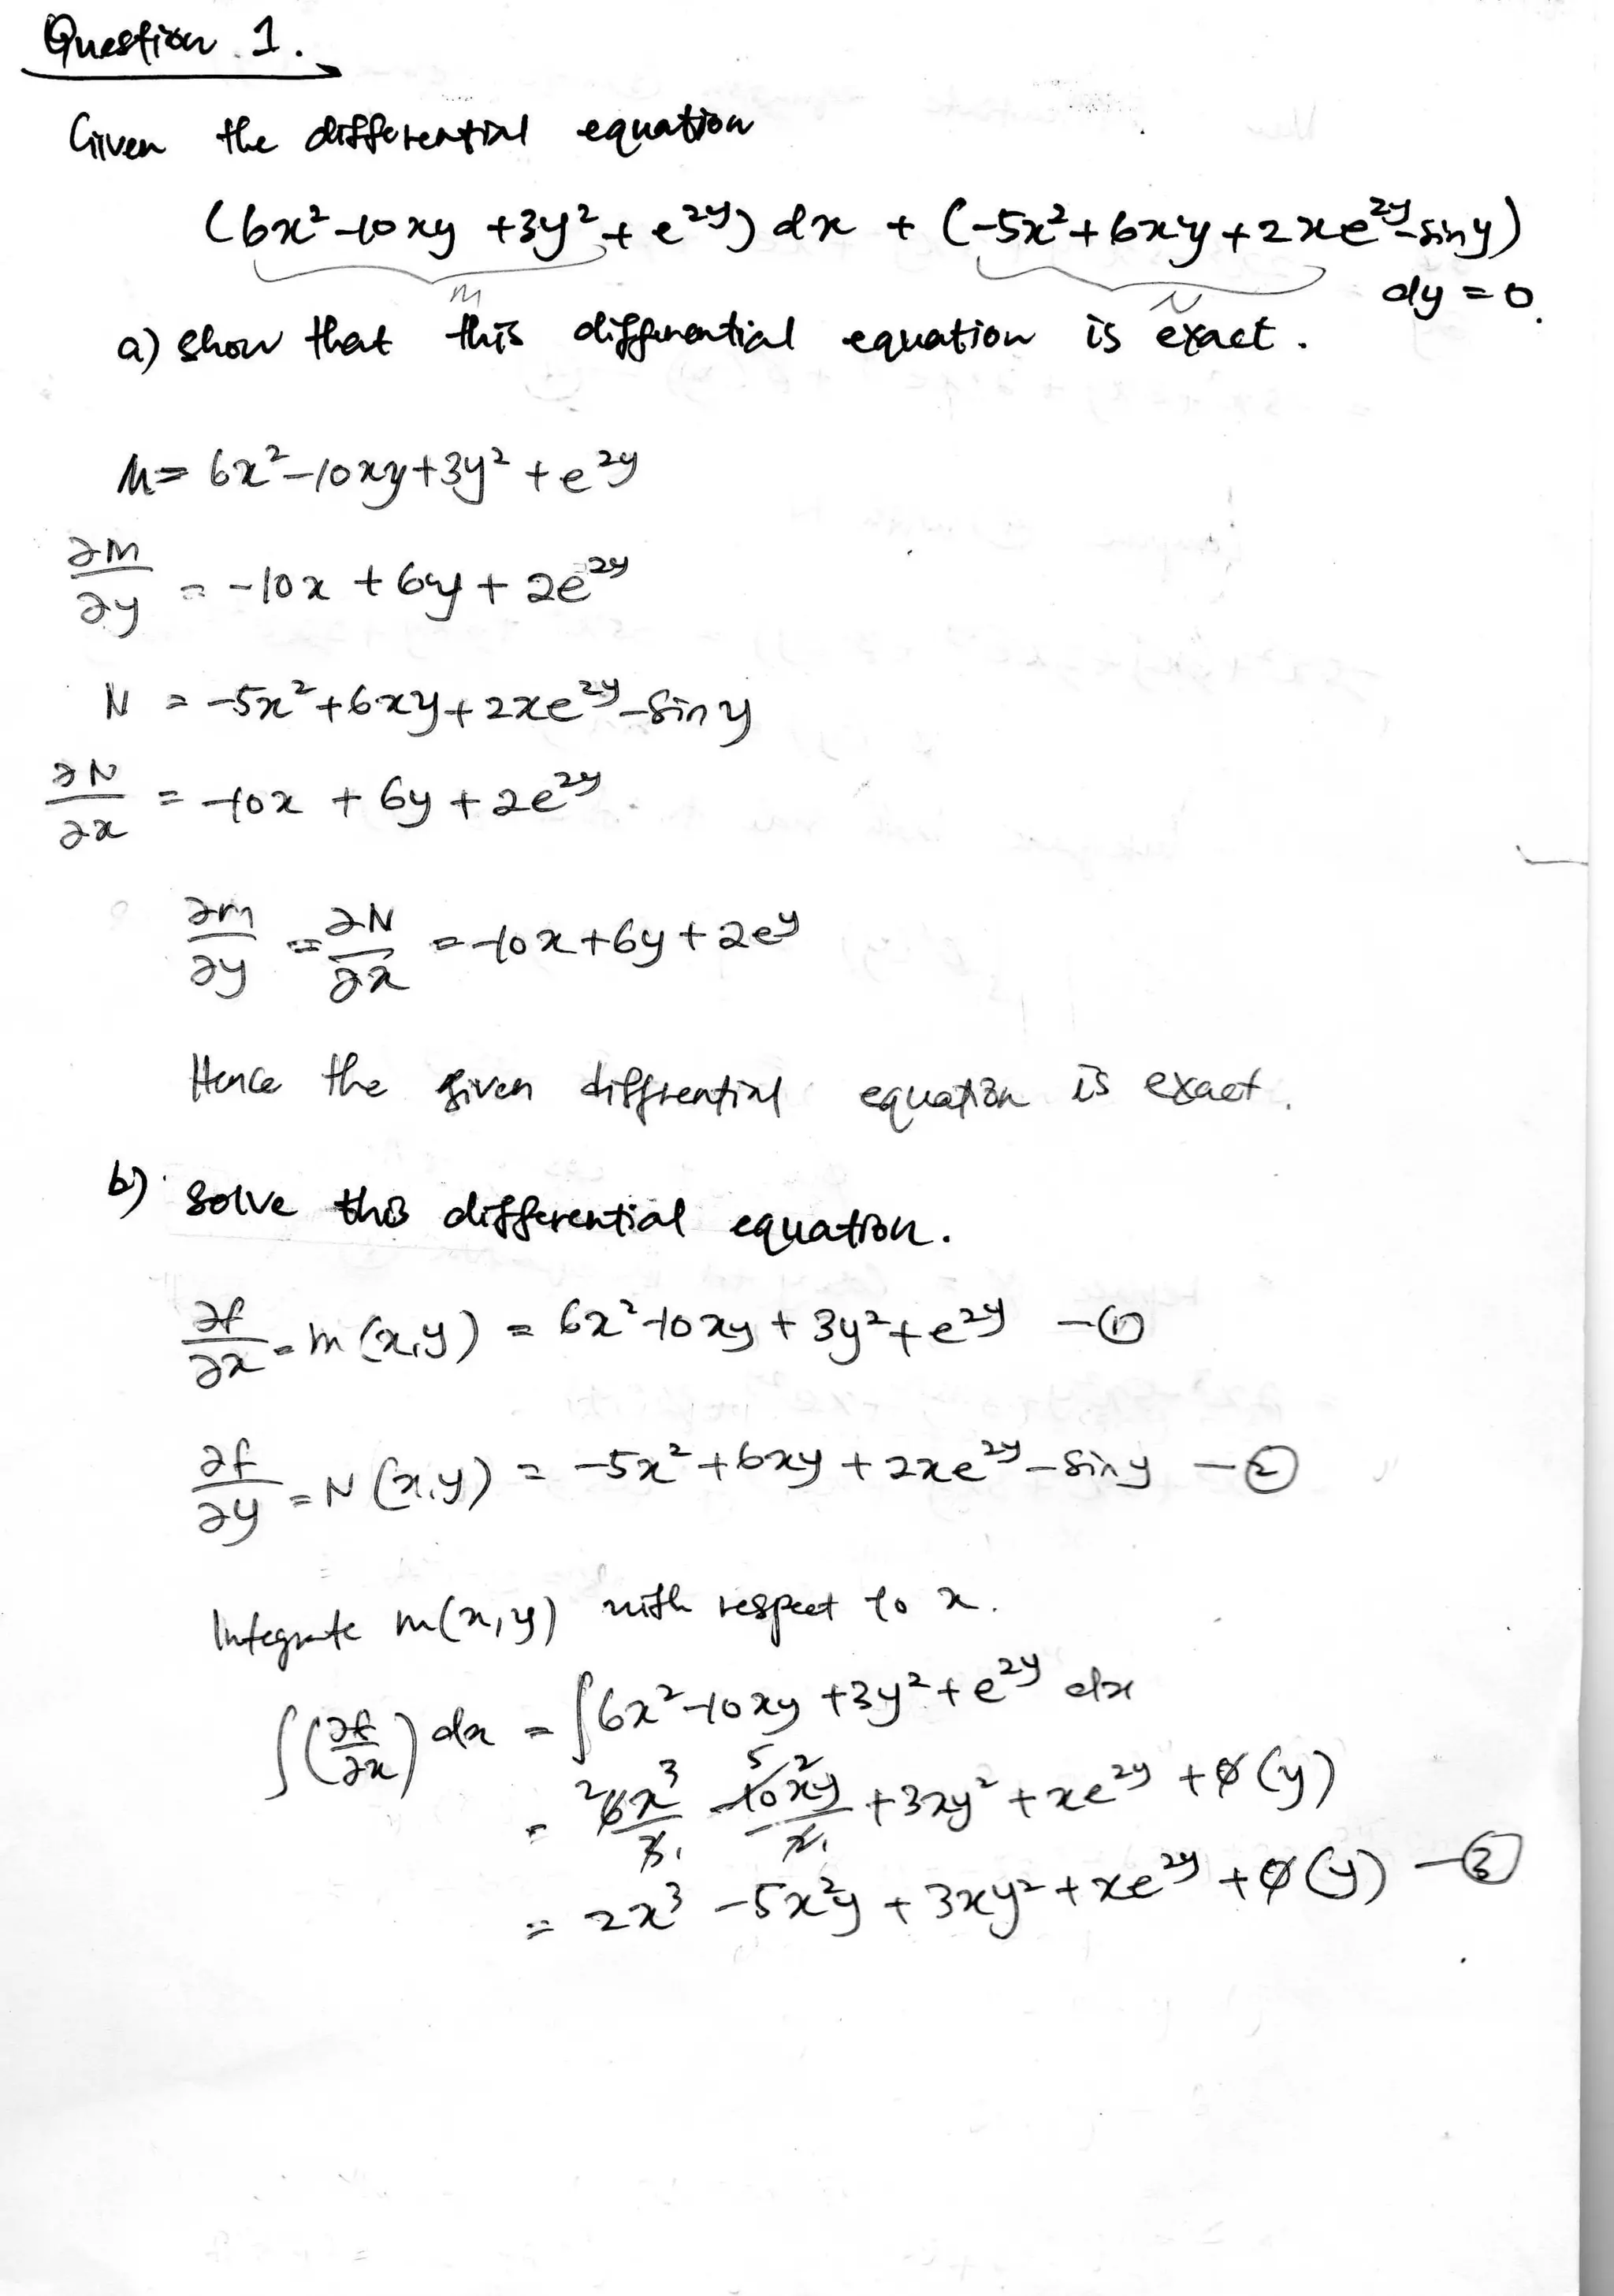 Question 1.
Given the differential equation
(6x²-10xy +3y²+e^2y) dx + (-5x²+6xy+2xe^2y-siny)
dy=0.
M
N
a) show that this differential equation is exact.
M= 6x²-10xy+3y²+e^2y
∂M/∂y = -10x+6y+2e^2y
N = -5x²+6xy+2xe^2y-siny
∂N/∂x = -10x+6y+2e^2y
∂m/∂y = ∂N/∂x = -10x+6y+2e^y
Hence the given diffrential equation is exact.
b) Solve this differential equation.
∂f/∂x = m(x,y) = 6x²-10xy+3y²+e^2y -①
∂f/∂y = N(x,y) = -5x²+6xy+2xe^2y-siny -②
Integrate m(x,y) with respect to x.
∫(∂f/∂x) dx = ∫6x²-10xy+3y²+e^2y dx
= 6x³/3 - 10x²y/2 + 3xy² + xe^2y + ø(y)
= 2x³-5x²y+3xy²+xe^2y+ø(y) -③